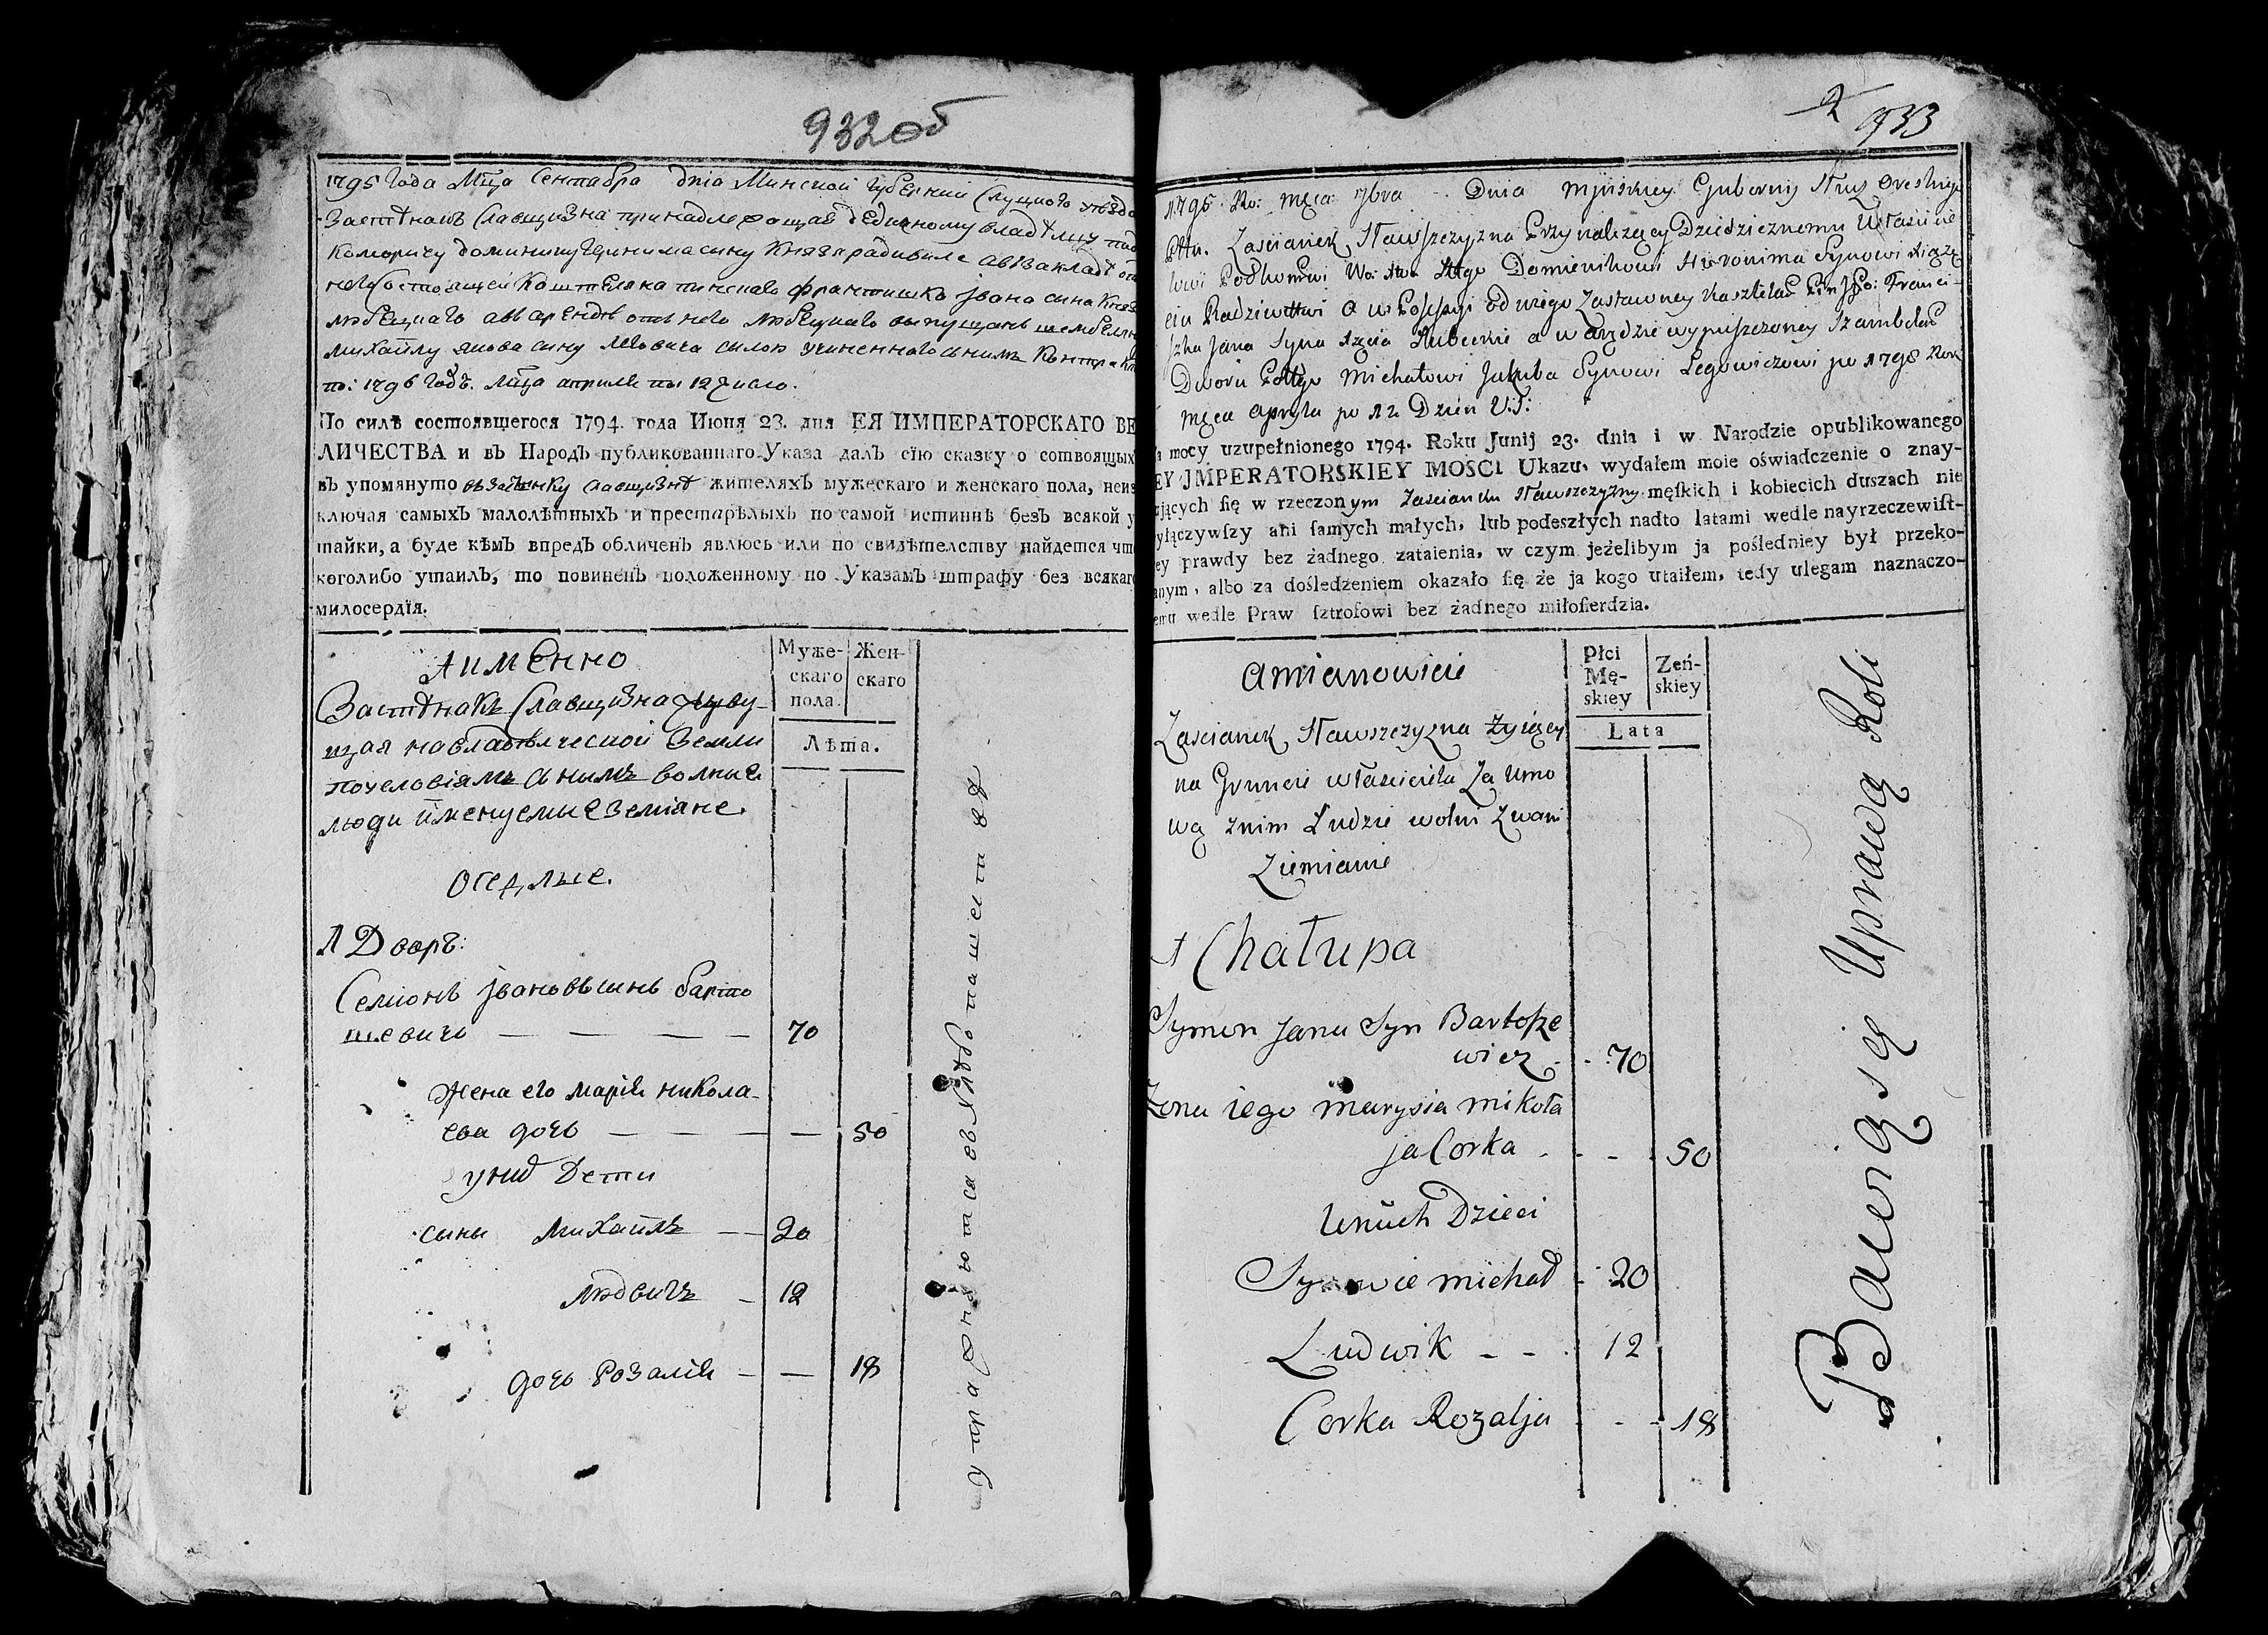 932 об
1795 года Мца Сентабра дnia Минской губернии Слуцкого уезда
Застѣнакъ Славщизна принадлежащая дедичному владѣлцу под
Коморичу доминику герінима сину Князю радивиле авзакладѣ от
него состоящей Каштеляна пинскаго францишка јвана сина Княз
любецкаго авварендѣ отъ него любецкаго выпущенъ шембелян
михайлу якова сину леговича силою учиненнаго сънимъ Контрак
по: 1796 годъ. Мца априля по 12 число.
По силѣ состоявшегося 1794. года Июня 23. дня ЕЯ ИМПЕРАТОРСКАГО ВЕ
ЛИЧЕСТВА и въ Народъ публикованнаго Указа далъ сїю сказку о сотвоящыхъ
въ упомянуто взастѣнку славщизнѣ жителяхъ мужескаго и женскаго пола, неиз
ключая самыхъ малолѣтныхъ и престарѣлыхъ по самой истиннѣ безъ всякой у
тайки, а буде кѣмъ впредъ обличенъ явлюсь или по свидѣтелству найдется что
коголибо утаилъ, то повиненъ положенному по Указамъ штрафу без всякаго
милосердїя.
Аименно
Муже-
скаго
пола.
Жен-
скаго
Лѣта.
Застѣнакъ Славщизна живу-
щая навладѣлческой земли
поуcловіямъ снимъ волные
люди именуемые земіане.
Оседлые.
1 Дворъ:
Семіонъ јвановъ синъ барто
шевичъ — — — — 70
жена его маріа никола-
ева дочь — — — — 50
у них Дети
сыны михаилъ — 20
людвигъ — 12
дочь розаліа — — 18
упражняютса въ хлѣбопашестве
2
933
1795 Ro: męca 7bra Dnia Mjńskiey Gubernij Słuz Oreskiego
Pttu. Zascianek Sławszczyzna Przynalezący Dziedzicznemu Własciċie
lowi Podkoměwi Wo: Lttgo Domienikowi Hieronima Synowi Xiązę
ciu Radziwiłłowi a w Possessyi od niego Zastawney Kasztelana Pińsgo: Franci-
szka Jana Syna Xcia Lubeckie a w arędzie wypuszczoney Szambelan
Dworu Polttgo Michałowi Jakuba Synowi Legowiczowi po 1798 Rok
męca Apryla po 12 Dzień V.S:
a mocy uzupełnionego 1794. Roku Junij 23. dnia i w Narodzie opublikowanego
EY JMPERATORSKIEY MOSCI Ukazu, wydałem moie oświadczenie o znay-
ujących się w rzeczonym Zascianku Sławszczyzny męskich i kobiecich duszach nie
yłączywszy ani samych małych, lub podeszłych nadto latami wedle nayrzeczewist-
ey prawdy bez żadnego zataienia, w czym jeżelibym ja posledniey był przeko-
anym, albo za dośledzeniem okazało się że ja kogo utaiłem, tedy ulegam naznaczo-
emu wedle Praw sztrofowi bez żadnego miłosierdzia.
amianowicie
Płci
Mę-
skiey
Zeń-
skiey
Lata
Zascianek Sławszczyzna żyiący
na Gruncie właściciela za umo
wą znim Ludzie wolni zwani
Ziemianie
1 Chałupa
Symon Jana Syn Bartosze
wicz - - 70
Zona iego marysia mikoła
ja Corka - - - 50
Unich Dzieci
Synowie michał - 20
Ludwik - - - 12
Corka Rozalja - - - 18
Bawiąsię Uprawą Roli